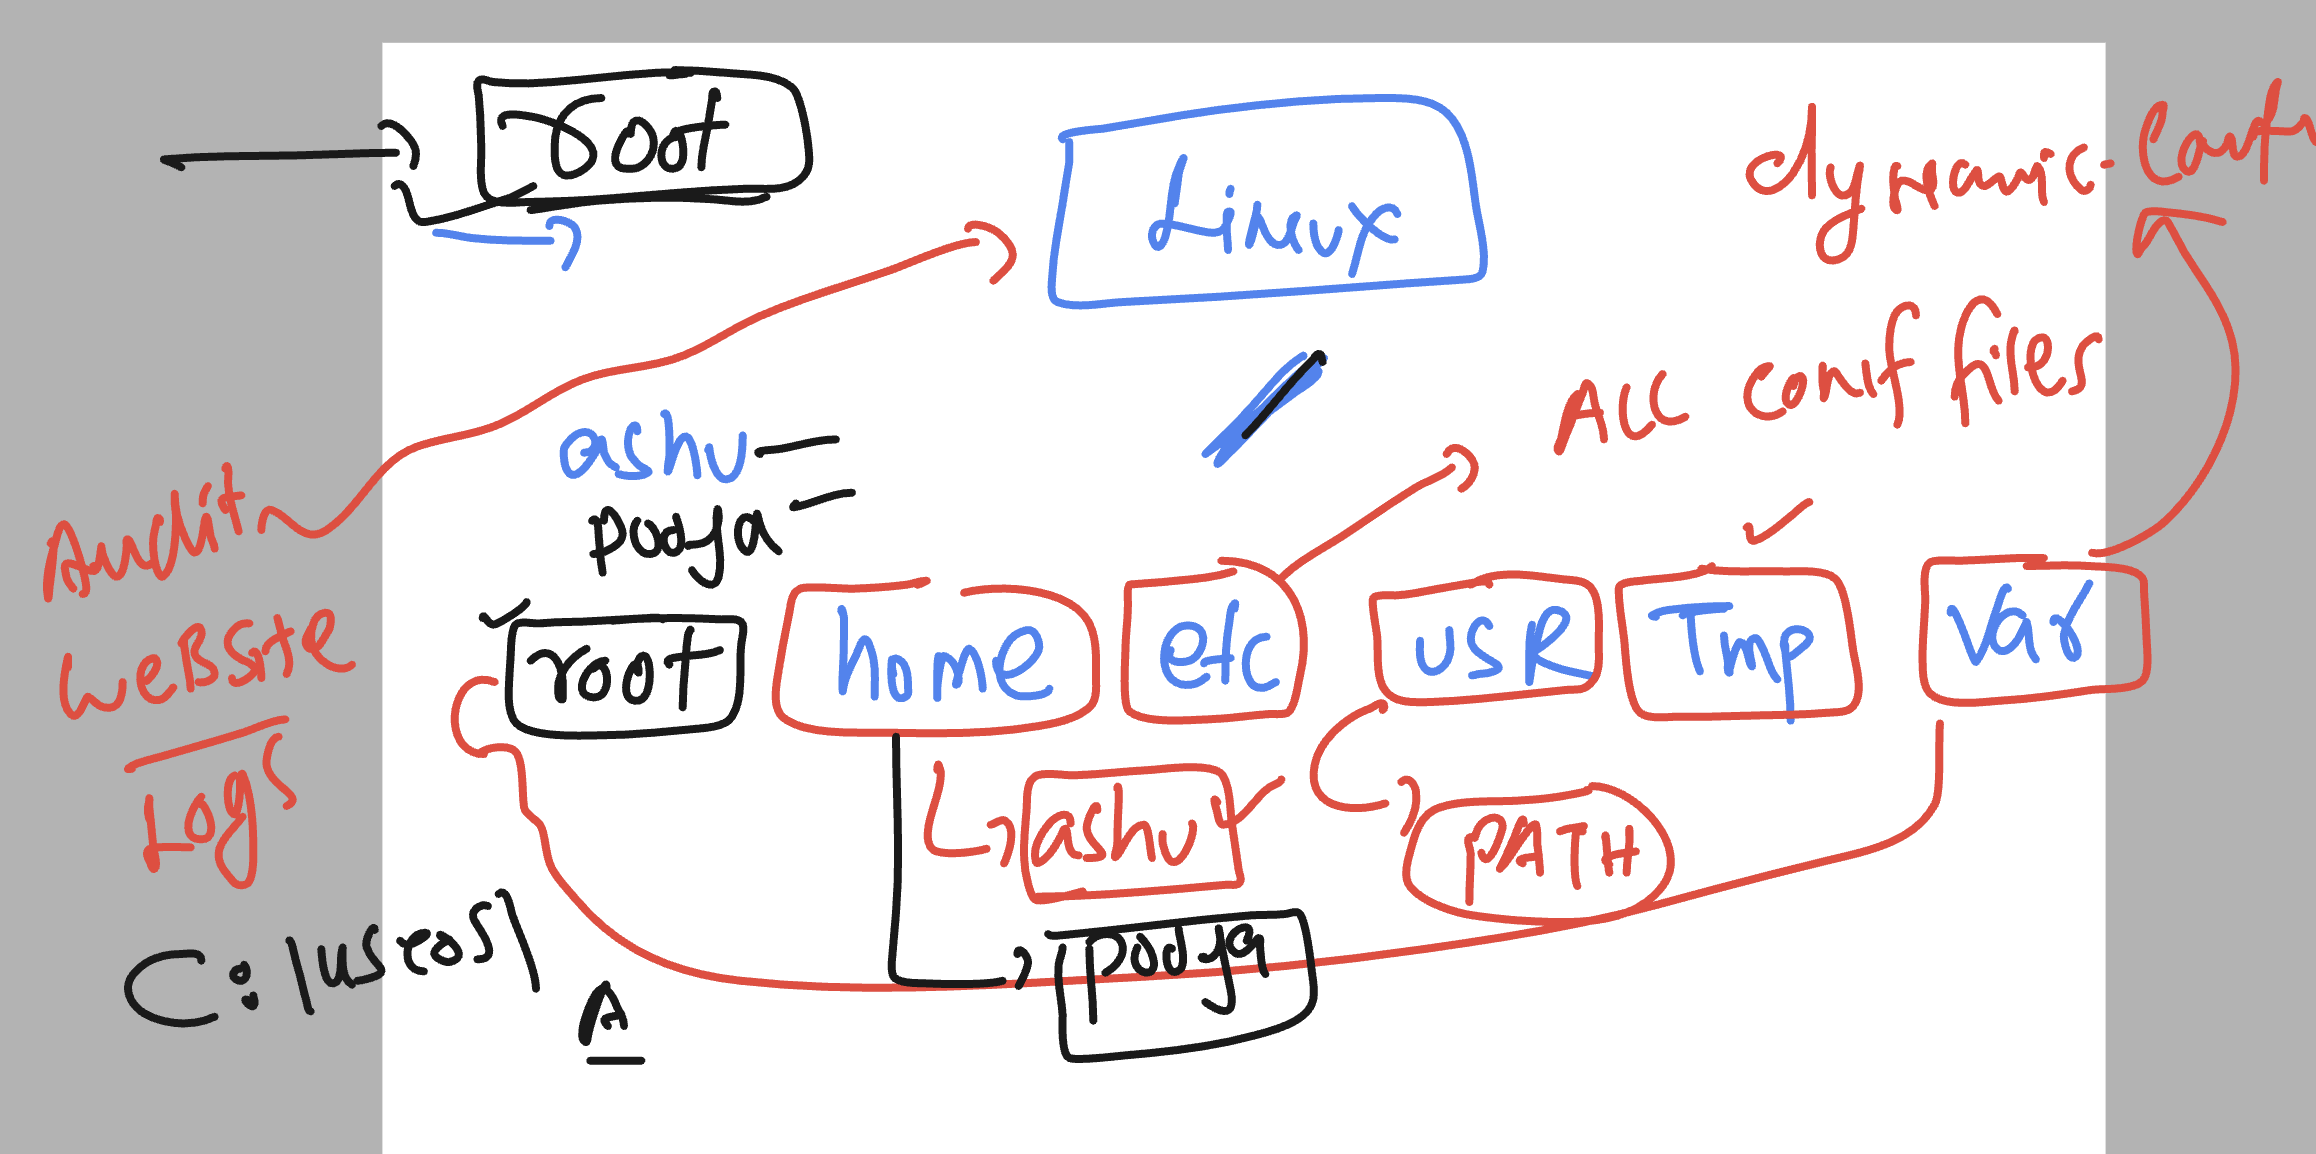 root
Linux
dynamic-
ALL conf files
/
ashu
pooja
Audit
WeBSite
Logs
root
home
etc
USR
Tmp
Var
ashu
PATH
pooja
C:\users\
A